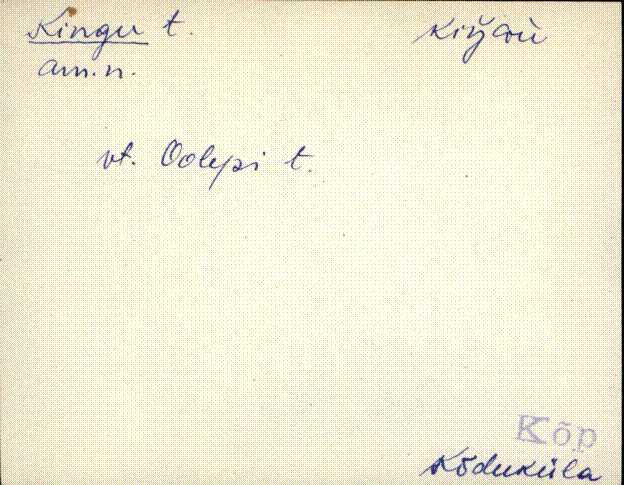 Kingu t.
am.n.
vt. Oolepi t.
Kõp
Kõduküla